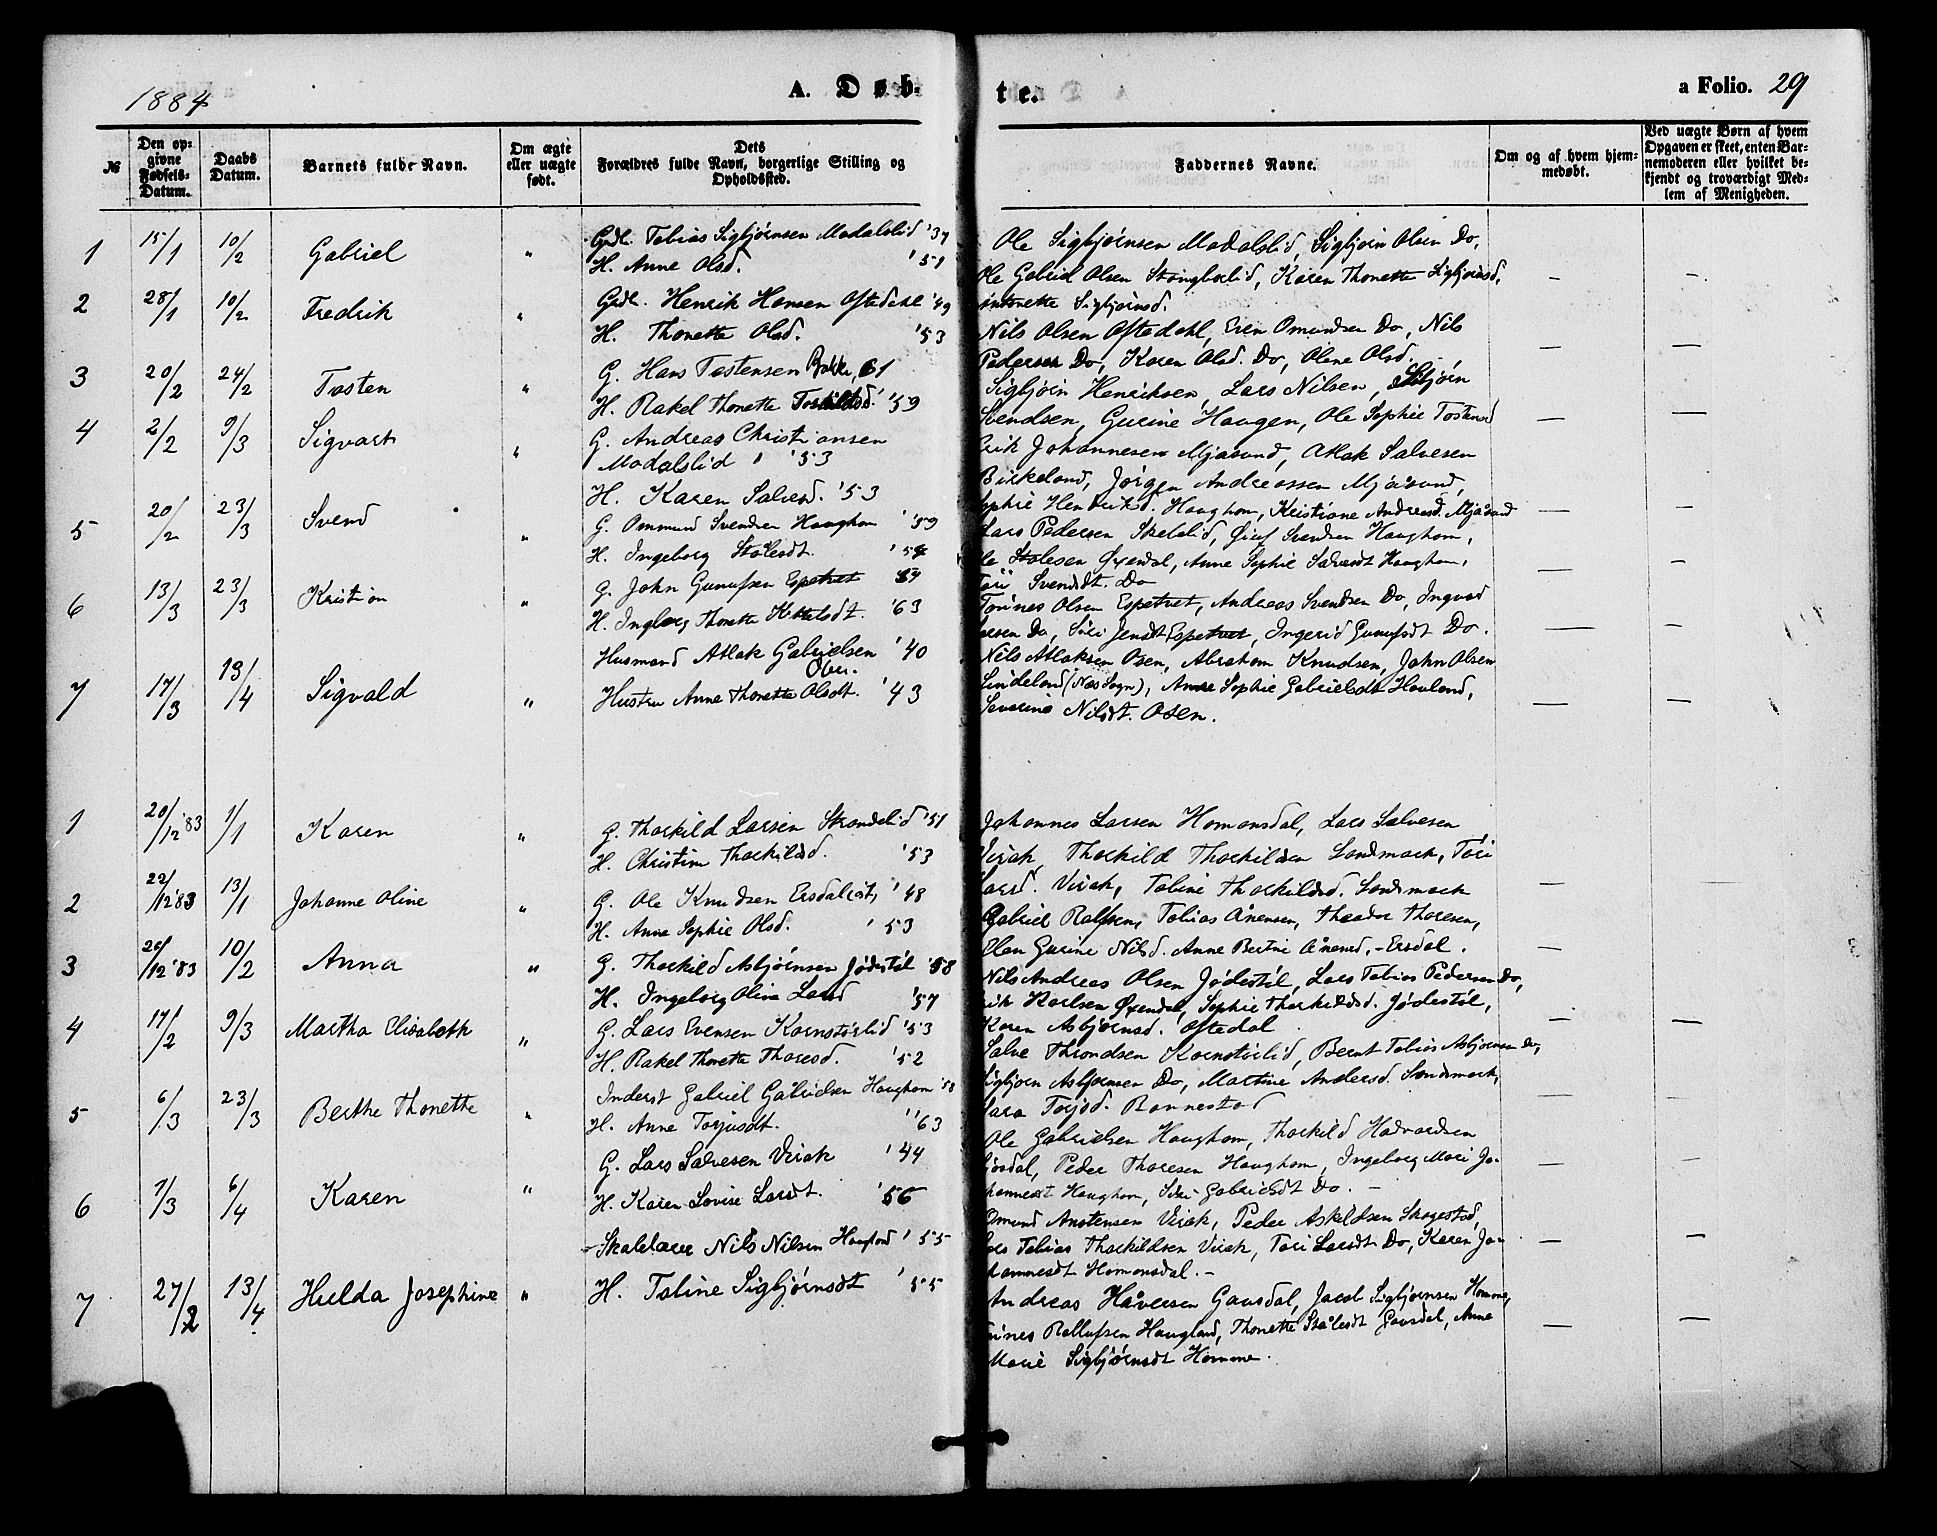 1884 A. Døb-
te. a Folio. 29
№ Den op-givne Fødsels-Datum. Daabs Datum. Barnets fulde Navn. Om ægte eller uægte født. Dets Forældres fulde Navn, borgerlige Stilling og Opholdssted.
Faddernes Navne. Om og af hvem hjem-medøbt. Ved uægte Børn af hvem Opgaven er skeet, enten Bar-nemoderen eller hvilket be-kjendt og troværdigt Med-lem af Menigheden.
1 15/1 10/2 Gabriel " Grdl. Tobias Sigbjørnsen Modalslid '37
H. Anne Olsd. '51
Ole Sigbjørnsen Modalslid, Sigbjørn Olsen Do,
Ole Gabriel Olsen Stongborlid, Karen Thonette Sigbjørnsd,
Antonette Sigbjørnsd.
2 28/1 10/2 Fredrik " Grdl. Henrik Hansen Oftedahl '49
H. Thonette Olsd. '53
Nils Olsen Oftedahl, Even Omundsen Do, Nils
Pedersen Do, Karen Olsd. Do, Olene Olsd.
3 20/2 24/2 Tosten " G. Hans Tostensen Bakke, 61
H. Rakel Thonette Torkildsd. '59
Sigbjørn Henriksen, Lars Nilsen, Sigbjørn
Svendsen, Gurine Haugen, Ole Sophie Tostensd
4 2/2 9/3 Sigvart " G. Andreas Christiansen
Modalslid '53
H. Karen Salvesd. '53
Erik Johannesen Mjåsund, Atlak Salvesen
Birkeland, Jørgen Andreassen Mjåsund,
Sophie Henriksd. Haughom, Kristiane Andreasd. Mjåsund
5 20/2 23/3 Svend " G. Ommund Svendsen Haughom '59
H. Ingeborg Stålesdt. '54
Lars Pedersen Skeblid, Svendsen Haughom,
Ole Stolesen Øxendal, Anne Sophie Salvesdt Haughom,
Tori Svendsdt. Do
6 13/3 23/3 Kristian " G. John Gunufsen Espetvet 54
H. Ingborg Thonette Kittelsdt. '63
Tørines Olsen Espetvet, Andreas Svendsen Do, Ingvad
Do, Siri Jensdt Espetvet, Ingerid Gunufsdt Do.
7 17/3 13/4 Sigvald " Husmand Atlak Gabrielsen '40
Osen.
Hustru Anne Thonette Olsdt. '43
Nils Atlaksen Osen, Abraham Knudsen, John Olsen
Lindeland (Næs Sogn), Anne Sophie Gabrielsdt Hovland,
Severine Nilsdt. Osen.
1 20/12 '83 1/1 Karen " G. Thorkild Larsen Strandelid '51
H. Christine Thorkildsd. '53
Johannes Larsen Homansdal, Lars Salvesen
Virak, Thorkild Thorkildsen Sandsmark, Tori
Larsd. Virak, Tobine Thorkildsd. Sandsmark
2 22/12 '83 13/1 Johanne Oline " G. Ole Knudsen Ersdal '48
H. Anne Sophie Olsd. '53
Gabriel Rolfsen, Tobias Ånensen, Theodor Thoresen,
Elen Gurine Nilsd. Anne Bertine Ånensd. - Ersdal.
3 26/12 '83 10/2 Anna " G. Thorkild Asbjørnsen Jødestøl '58
H. Ingeborg Oline Larsd '57
Nils Andreas Olsen Jødestøl, Lars Tobias Pedersen Do,
Erik Karlsen Øxendal, Sophie Thorkildsd. Jødestøl,
Karen Asbjørnsd. Oftedal
4 17/2 9/3 Martha Elisabeth " G. Lars Evensen Kornstørlid '53
H. Rakel Thonette Thoresd. '52
Salve Throndsen Kornstørlid, Bernt Tobias Asbjørnsen Do,
Sigbjørn Asbjørnsen Do, Martine Andersd. Sandsmark,
Sara Torjsd. Rannestad
5 6/3 23/3 Berthe Thonette " Inderst Gabriel Gabrielsen Haughom '58
H. Anne Torjusdt. '63
Ole Gabrielsen Haughom, Thorkild Hadvardsen
Peder Thoresen Haughom, Ingeborg Mari Jo-
hannesdt Haughom, Siri Gabrielsdt Do. -
6 1/3 6/4 Karen " G. Lars Salvesen Virak '44
H. Karen Lovise Larsdt. '56
Omund Anstensen Virak, Peder Askildsen Skogestad,
Lars Tobias Thorkildsen Virak, Tori Larsdt Do, Karen Jo-
hannesdt Homansdal. -
7 27/2 13/4 Hulda Josephine " Skolelærer Nils Nilsen Haugland '55
H. Tobine Sigbjørnsdt '55
Andreas Håversen Gausdal, Jacob Sigbjørnsen Homme,
Tørines Rolufsen Haugland, Thonette Stålesdt Gausdal, Anne
Marie Sigbjørnsdt Homme.